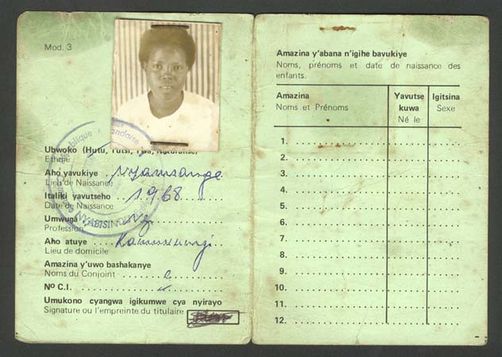 Mod. 3
Ubwoko (Hutu, Tutsi, Twa, Naturalisé)
Ethnie
Aho yavukiye Nyamsange
Lieu de Naissance
Italiki yavutseho 1968
Date de Naissance
Umwuga
Profession
Aho atuye
Lieu de domicile
Amazina y'uwo bashakanye
Noms du Conjoint
No C.I.
Umukono cyangwa igikumwe cya nyirayo
Signature ou l'empreinte du titulaire
Amazina y'abana n'igihe bavukiye
Noms, prénoms et date de naissance des
enfants.
Amazina Yavutse kuwa Igitsina
Noms et Prénoms Né le Sexe
1.
2.
3.
4.
5.
6.
7.
8.
9.
10.
11.
12.